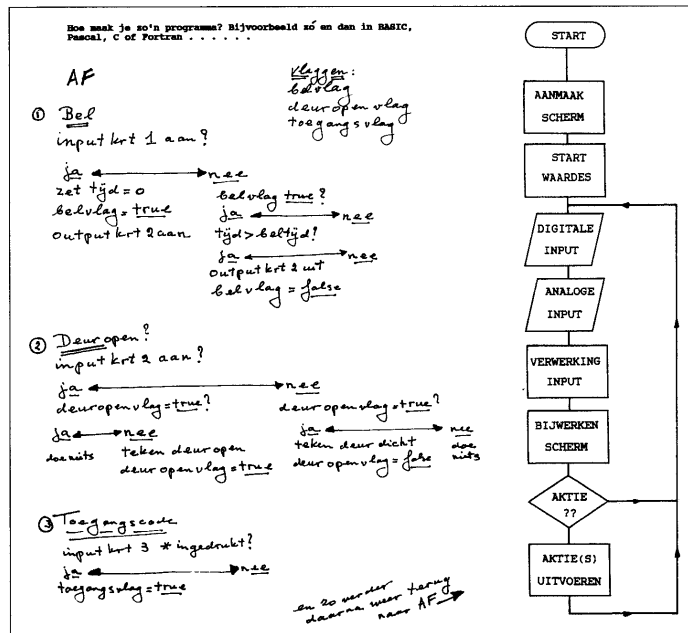 Hoe maak je zo'n programma? Bijvoorbeeld zó en dan in BASIC,
Pascal, C of Fortran . . . . . .
AF
Vlaggen:
belvlag
deuropenvlag
toegangsvlag
① Bel
input krt 1 aan?
ja nee
zet tijd=0
belvlag=true
output krt 2 aan
belvlag true?
ja nee
tijd>beltijd?
ja nee
output krt 2 uit
belvlag=false
② Deuropen?
input krt 2 aan?
ja nee
deuropenvlag=true? deuropenvlag=true?
ja nee
doe niets
teken deuropen
deuropenvlag=true
ja nee
teken deur dicht
deuropenvlag=false
doe
niets
③ Toegangscode
input krt 3 * ingedrukt?
ja nee
toegangsvlag=true
en zo verder
daarna weer terug
naar AF
START
AANMAAK
SCHERM
START
WAARDES
DIGITALE
INPUT
ANALOGE
INPUT
VERWERKING
INPUT
BIJWERKEN
SCHERM
AKTIE
??
AKTIE(S)
UITVOEREN